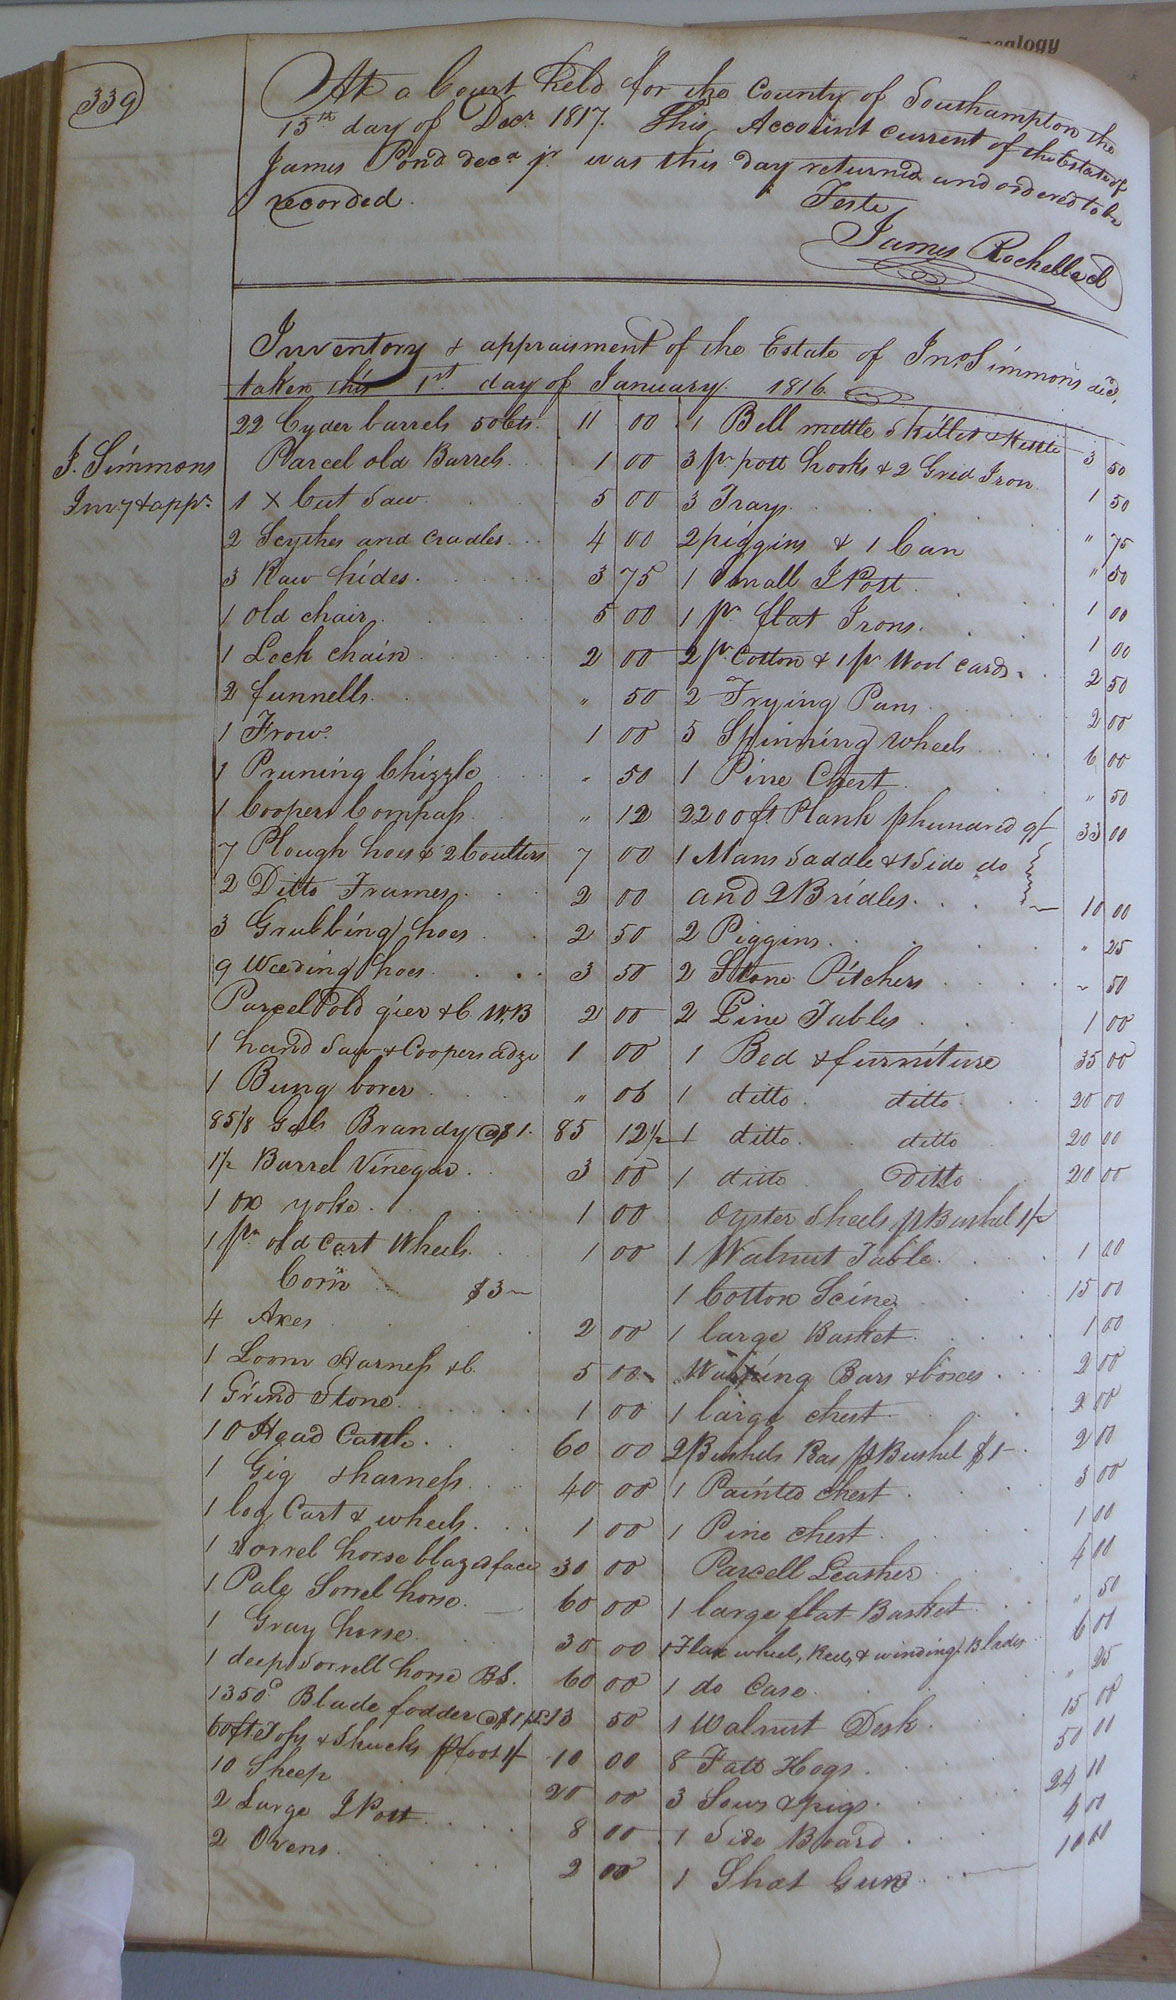 339
At a Court held for the County of Southampton the
15th day of Decr. 1817. This Account current of the Estate of
James Pond decd jr was this day returned and ordered to be
recorded.
Teste
James Rochelle cl
Inventory & appraisment of the Estate of Jno. Simmons decd,
taken this 1st day of January 1816.
J. Simmons
Invy & appr.
22 Cyder barrels 50 cts. 11 00
Parcel old Barrels 1 00
1 X Cut Saw 5 00
2 Scythes and cradles 4 00
3 Raw hides 3 75
1 old chair 5 00
1 Lock chain 2 00
2 funnells " 50
1 Frow 1 00
1 Pruning Chizzle " 50
1 Coopers Compass " 12
7 Plough hoes & 2 Coulters 7 00
2 Ditto Frames 2 00
3 Grubbing hoes 2 50
9 Weeding hoes 3 50
Parcel old gier &c. W.B 2 00
1 hand Saw & Coopers adze 1 00
1 Bung borer " 06
85 1/8 Gals Brandy @ $1. 85 12½
1½ Barrel Vinegar 3 00
1 ox yoke 1 00
1 pr. old Cart Wheels 1 00
Corn $3
4 Axes 2 00
1 Loom Harness &c. 5 00
1 Grind Stone 1 00
10 Head Cattle 60 00
1 Gig & harness 40 00
1 log Cart & wheels 1 00
1 Sorrel horse blazed face 30 00
1 Pale Sorrel horse 60 00
1 Gray horse 30 00
1 deep Sorrell horse B.S. 60 00
1350 Blade fodder @ $1 13 50
60 ft Tops & Shucks p foot 1/ 10 00
10 Sheep 20 00
2 Large I Pott 8 00
2 Ovens 2 00
1 Bell mettle Skillet & Kettle 3 50
3 pr. pott hooks & 2 Grid Iron 1 50
3 Trays " 75
2 piggins & 1 Can " 50
1 Small I Pott 1 00
1 pr. flat Irons 1 00
2 pr Cotton & 1 pr Wool cards 2 50
2 Frying Pans 2 00
5 Spinning wheels 6 00
1 Pine Chest " 50
2200 ft. Plank p hundred 9/ 33 00
1 Mans Saddle & 1 Side do
and 2 Bridles 10 00
2 Piggins " 25
2 Stone Pitchers " 50
2 Pine Tables 1 00
1 Bed & furniture 35 00
1 ditto ditto 20 00
1 ditto ditto 20 00
1 ditto Ditto 20 00
Oyster Shells p Bushel 1/
1 Walnut Table 1 00
1 Cotton Scine 15 00
1 large Basket 1 00
Bars & boxes 2 00
1 large chest 2 00
2 Bushels p Bushel $1 2 00
1 Painted chest 3 00
1 Pine chest 1 00
Parcell Leather 4 00
1 large flat Basket " 50
1 Flax wheel, Reel, & winding Blades 6 00
1 do Case " 25
1 Walnut Desk 15 00
8 Fatt Hogs 50 00
3 Sows & pigs 24 00
1 Side Board 4 00
1 Shot Gun 10 00